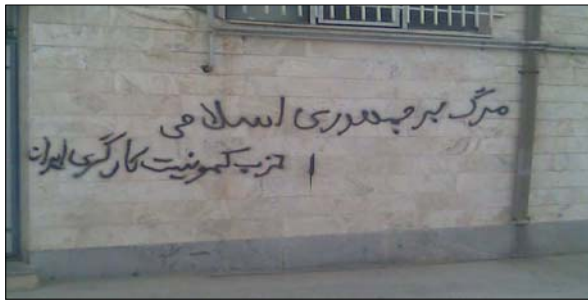 مرگ بر جمهوری اسلامی
حزب کمونیست کارگری ایران